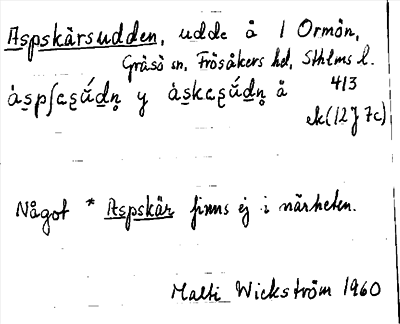 Aspskärsudden, udde å / Ormön,
Gräsö sn, Frösåkers hd, Sthlms l.
413
y å
ek (12J 7c)
Något * Aspskär finns ej i närheten.
Matti Wickström 1960